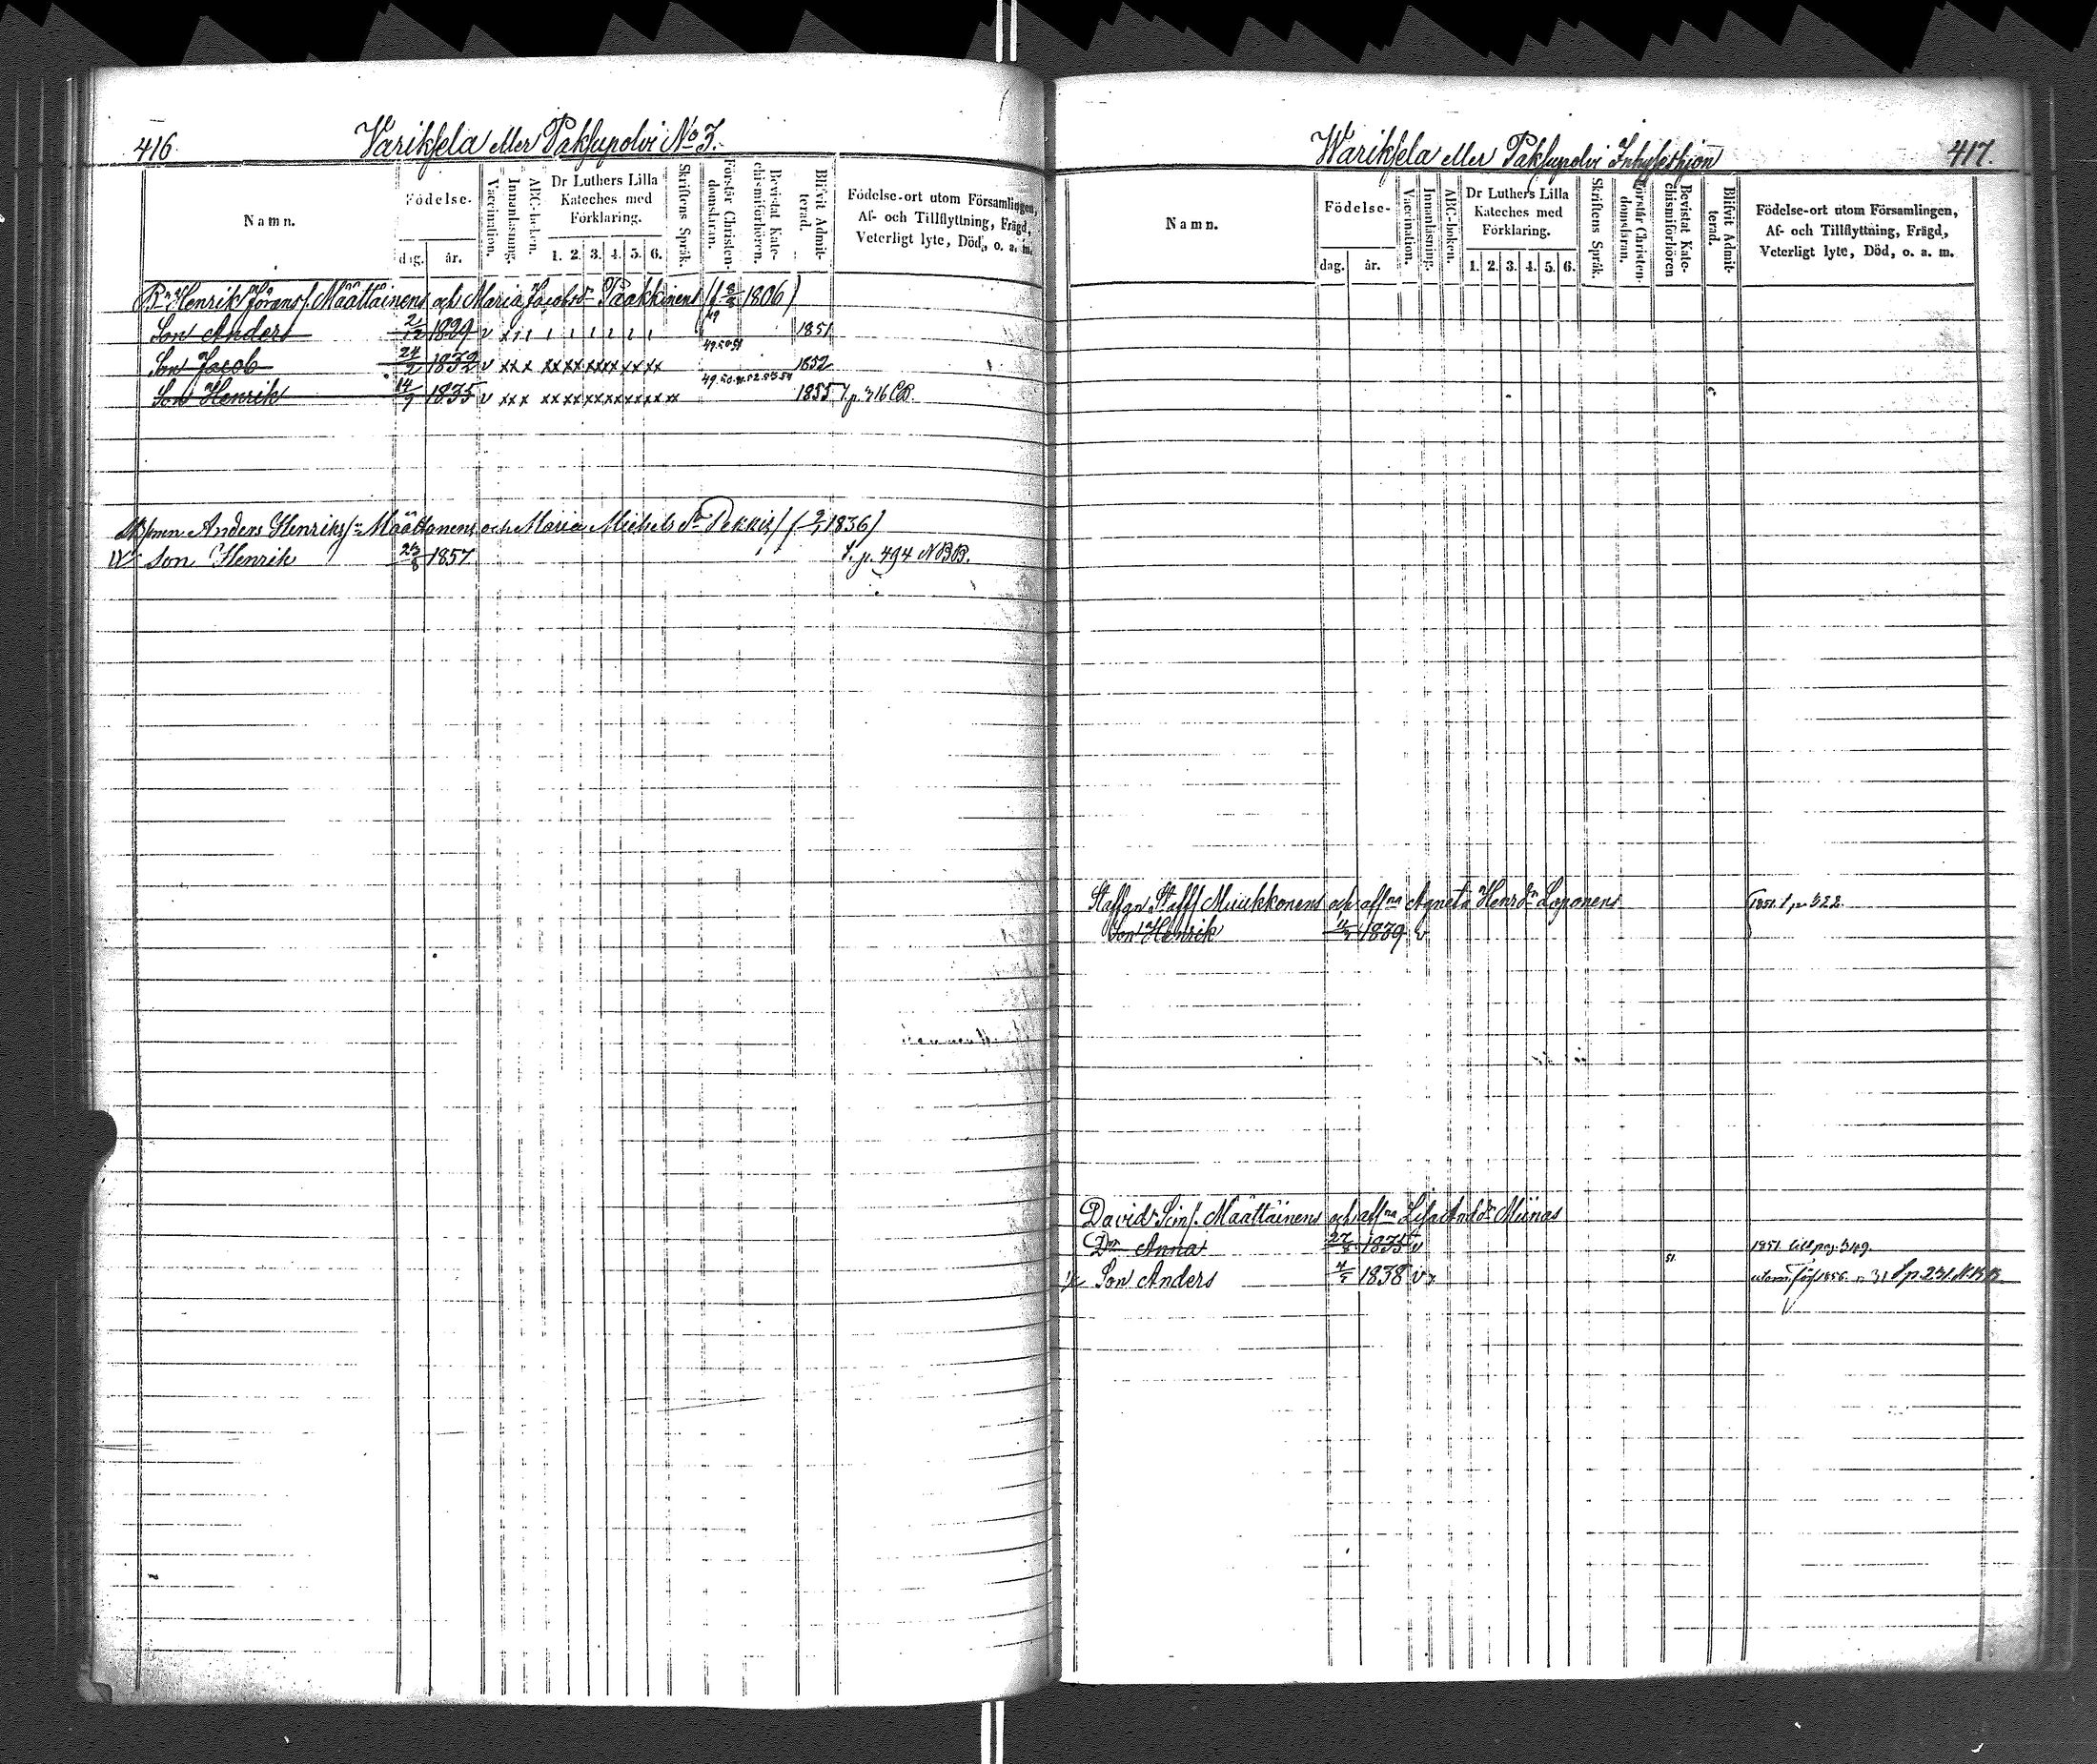 416. Variksela eller Paksupolvi No 3.
Namn.
Födelse-
dag. år.
Vaccination.
Innanläsning.
ABC-boken.
Dr Luthers Lilla
Kateches med
Förklaring.
1. 2. 3. 4. 5. 6.
Skriftens Språk.
Förstår Christen-
domsläran.
Bevistat Kate-
chismiförhören.
Blifvit Admit-
terad.
Födelse-ort utom Församlingen,
Af- och Tillflyttning, Frägd,
Veterligt lyte, Död, o. a. m.
Henrik Görans. Määttäinens och Maria Jacobsdr Paakkinens 1806)
Son Anders 2/12 1829 v 49 1851
Son Jacob 24/2 1832 v xxx xx xx xxxx xx xx 49.50.51 1852
Son Henrik 14/7 1835 v xxx xx xx xx xx xx xx xx 49.50.51.52.53.54 1855
Anders Henriks Määttänens och Maria Michelsdr 1836)
Son Henrik 1857 p. 494 NBB.
Warikfela eller Paksupolvi Inhyseshjon 417.
Namn.
Födelse-
dag. år.
Vaccination.
Innanläsning.
ABC-boken.
Dr Luthers Lilla
Kateches med
Förklaring.
1. 2. 3. 4. 5. 6.
Skriftens Språk.
Förstår Christen-
domsläran.
Bevistat Kate-
chismiförhören
Blifvit Admit-
terad.
Födelse-ort utom Församlingen,
Af- och Tillflyttning, Frägd,
Veterligt lyte, Död, o. a. m.
Staffan Staffs Muukkonens och Agneta Henrdr Loponens 1851. p. 322.
Son Henrik 1839 v
David Sims. Määttäinens och Lisa Anddr Miinas
Dr Anna 27/8 1835 v 1851. till pag. 349.
Son Anders 4/5 1838 v 51. 1856. p. 231. N.B.B.